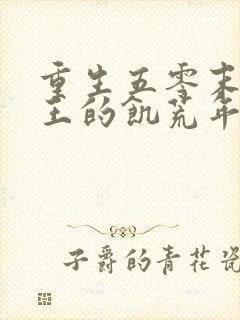 重生五零末
王的饥荒年
子爵的青花瓷